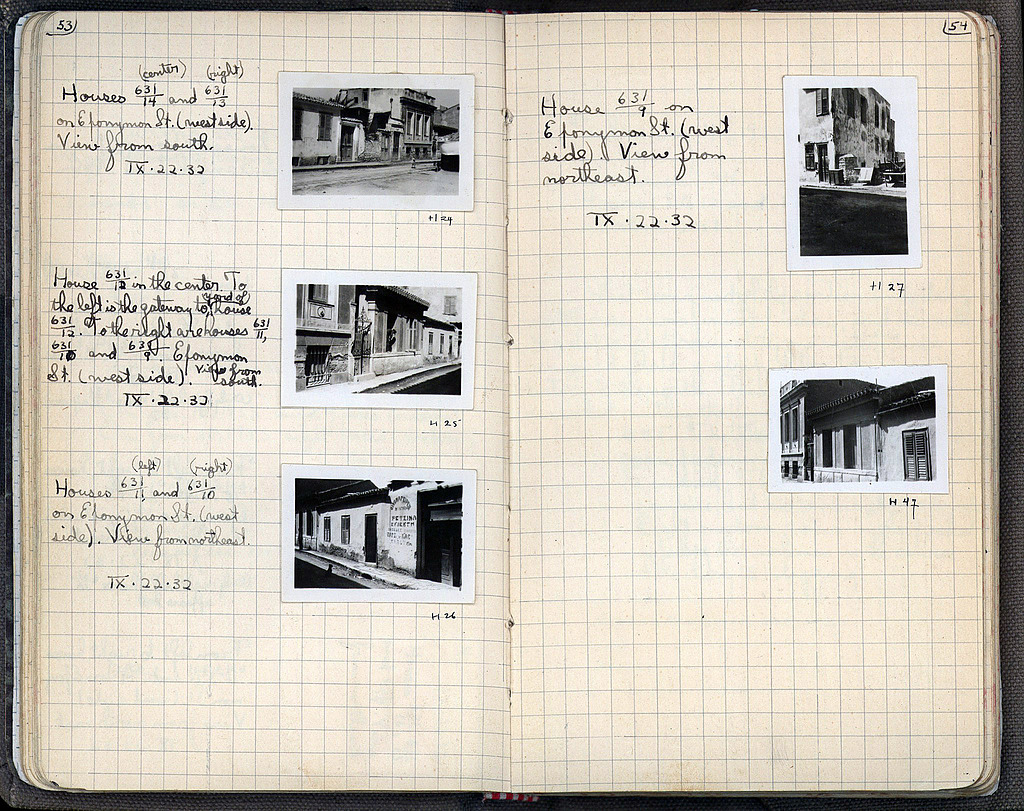 53
(center) (right)
Houses 631/14 and 631/13
on Eponymon St. (west side).
View from south.
IX·22·32
H 24
House 631/12 in the center. To
the left is the gateway to yard of house
631/12. To the right are houses 631/11,
631/10 and 631/9. Eponymon
St. (west side). View from south.
IX·22·32
H 25
(left) (right)
Houses 631/11 and 631/10
on Eponymon St. (west
side). View from northeast.
IX·22·32
H 26
54
House 631/9 on
Eponymon St. (west
side). View from
northeast.
IX·22·32
H 27
H 47